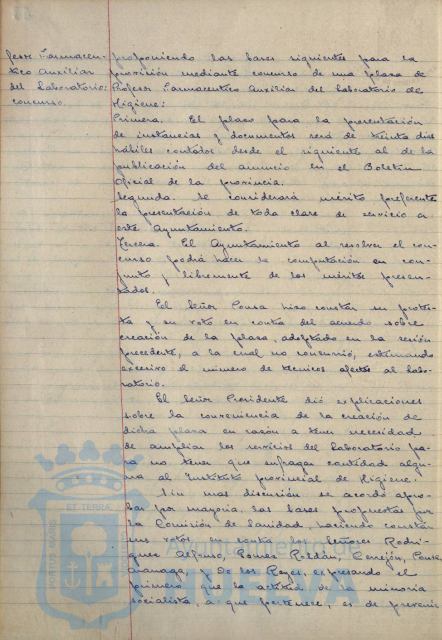 fesor Farmaceu-
tico Auxiliar
del Laboratorio:
concurso.
proponiendo las bases siguientes para la
provisión mediante concurso de una plaza de
Profesor Farmaceutico Auxiliar del Laboratorio de
Higiene:
Primera. El plazo para la presentación
de instancias y documentos será de treinta dias
hábiles contados desde el siguiente al de la
publicación del anuncio en el Boletin
Oficial de la provincia.
Segunda. Se considerará mérito preferente
la presentación de toda clase de servicio a
este Ayuntamiento.
Tercera. El Ayuntamiento al resolver el con-
curso podrá hacer la computación en con-
junto y libremente de los méritos presen-
tados.
El Señor Ponsa hizo constar su protes-
ta y su voto en contra del acuerdo sobre
creación de la plaza, adoptado en la sesión
precedente, a la cual no concurrió, estimando
excesivo el número de tecnicos afectos al labo-
ratorio.
El Señor Presidente dió explicaciones
sobre la conveniencia de la creación de
dicha plaza en razón a tener necesidad
de ampliar los servicios del Laboratorio pa-
ra no tener que sufragar cantidad algu-
na al Instituto provincial de Higiene.
Sin mas discusión se acordó apro-
bar por mayoria las bases propuestas por
la Comisión de Sanidad, haciendo constar
sus votos en contra los Señores Rodri-
guez Alfonso, Pomes Roldán, Cerejón, Ponsa
y De los Reyes, expresando el
primero que la actitud de la minoria
socialista, a que pertenece, es de preveniz
PORTUS MARIS ET TERRAE
HUELVA